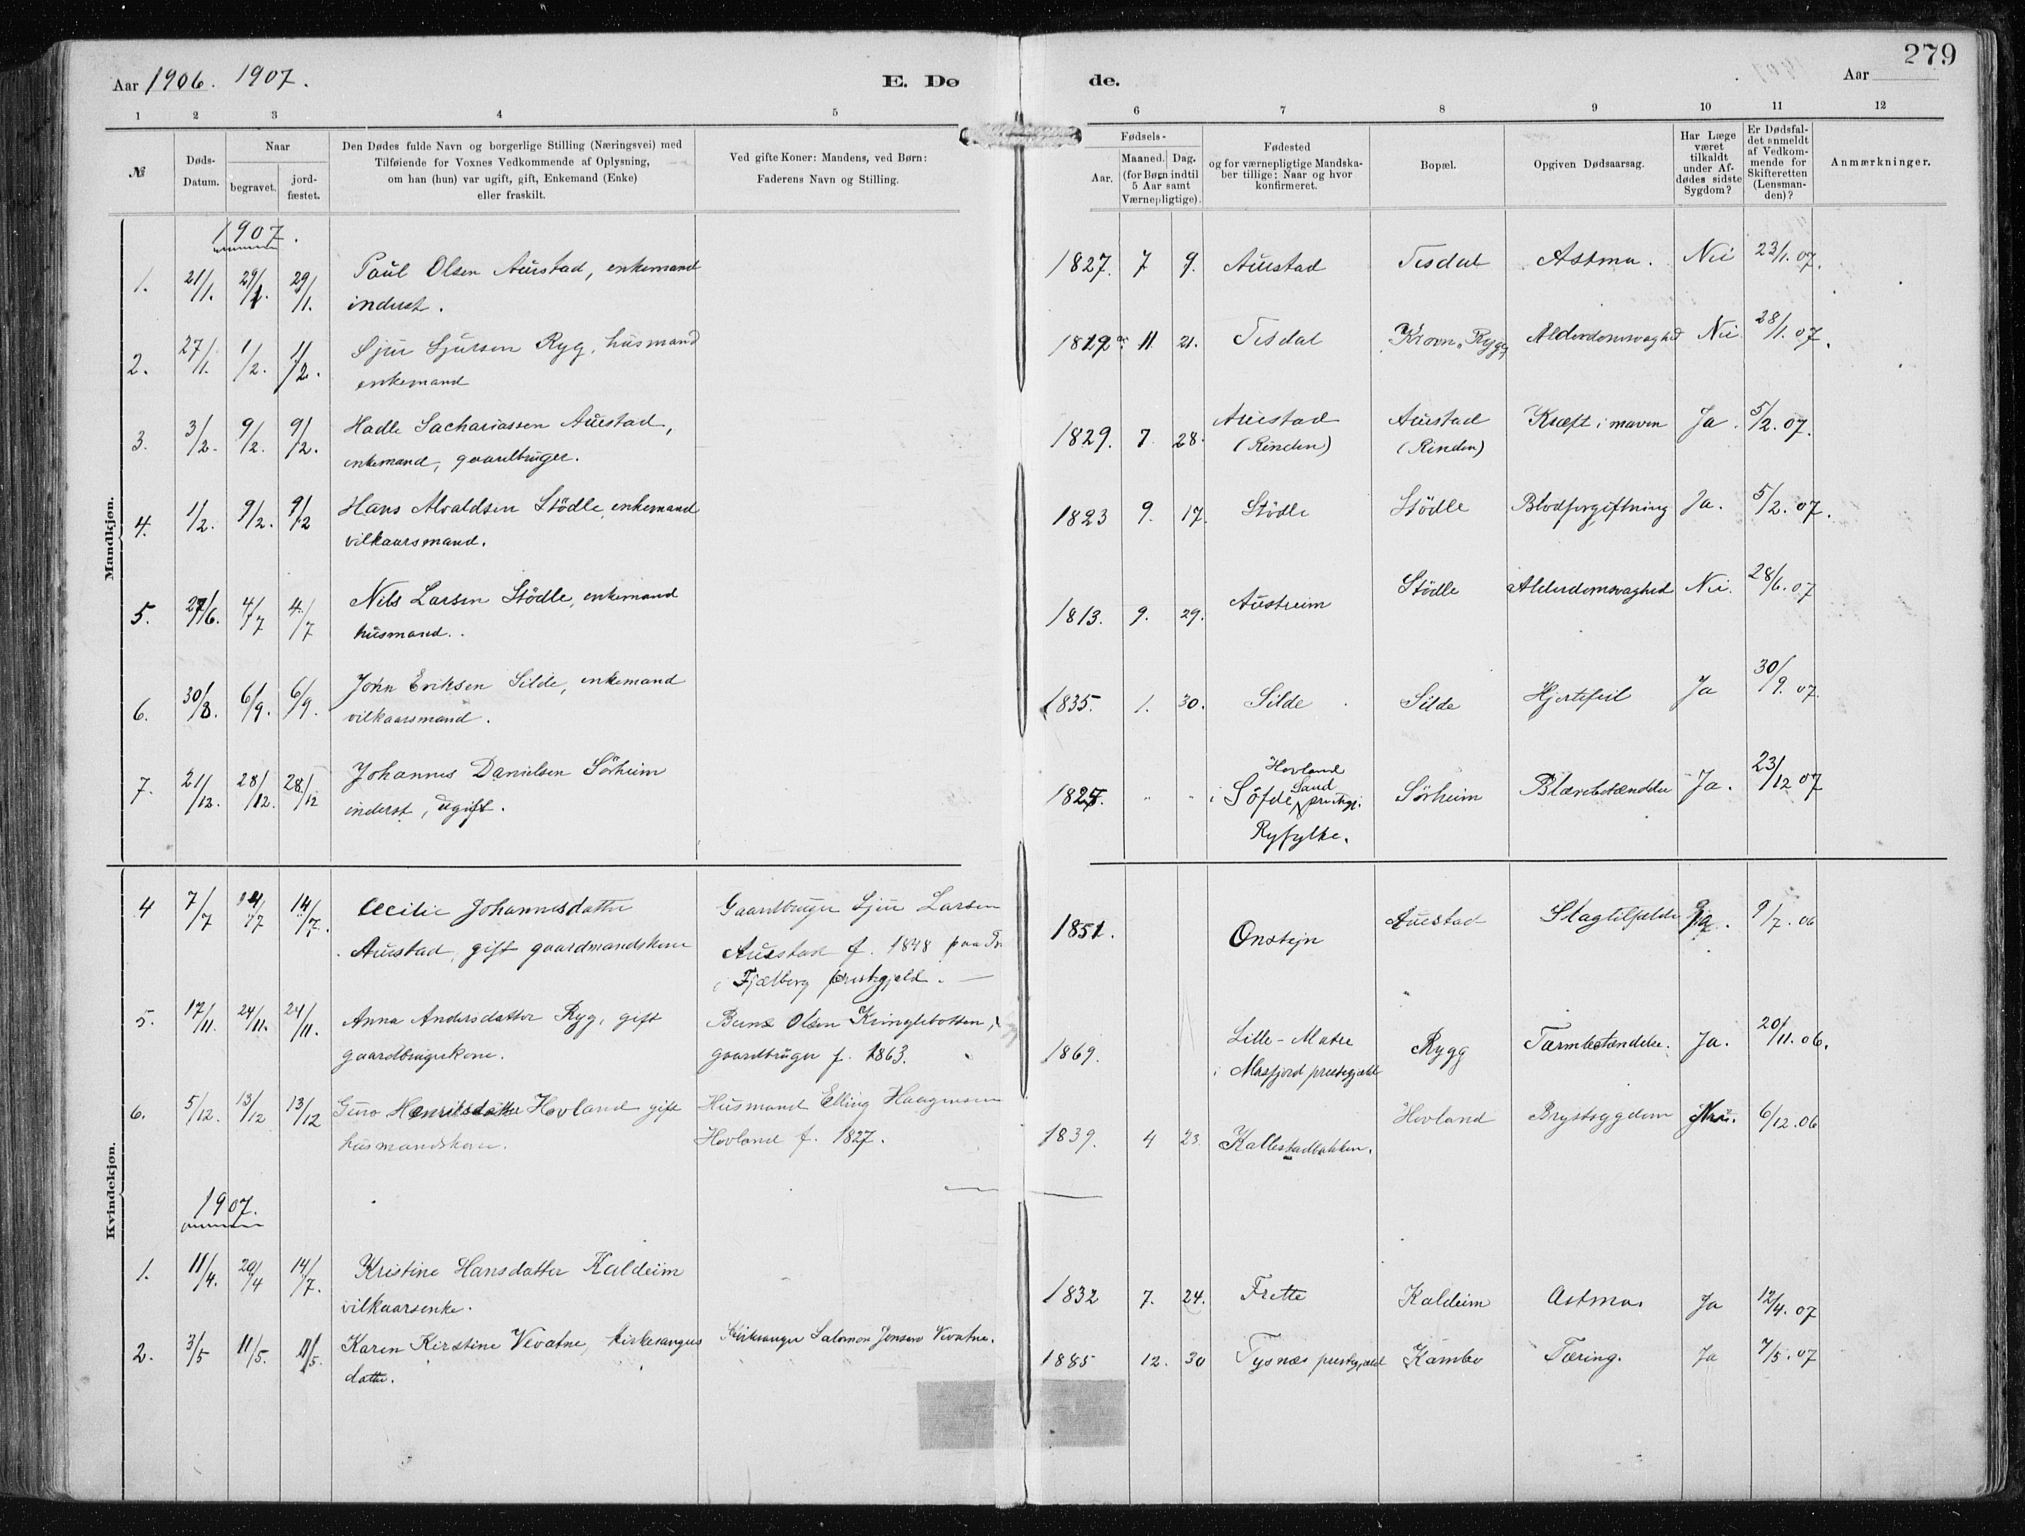 279
Aar 1906. 1907.
E. Dø
de.
Aar
1 2 3 4 5 6 7 8 9 10 11 12
№
Døds-
Datum.
Naar
begravet.
jord-
fæstet.
Den Dødes fulde Navn og borgerlige Stilling (Næringsvei) med
Tilføiende for Voxnes Vedkommende af Oplysning,
om han (hun) var ugift, gift, Enkemand (Enke)
eller fraskilt.
Ved gifte Koner: Mandens, ved Børn:
Faderens Navn og Stilling.
Fødsels-
Aar.
Maaned. Dag.
(for Børn indtil
5 Aar samt
Værnepligtige).
Fødested
og for værnepligtige Mandska-
ber tillige: Naar og hvor
konfirmeret.
Bopæl.
Opgiven Dødsaarsag.
Har Læge
været
tilkaldt
under Af-
dødes sidste
Sygdom?
Er Dødsfal-
det anmeldt
af Vedkom-
mende for
Skifteretten
(Lensman-
den)?
Anmærkninger.
Mandkjøn.
1907.
1. 21/1. 29/1. 29/1. Paul Olsen Austad, enkemand 1827. 7 9. Austad Tesdal Astma. Nei 23/1. 07.
inderst.
2. 27/1. 1/2. 1/2. Sjur Sjursen Ryg, husmand 11 21. Tesdal Rygg Alderdomsvaghed Nei 28/1. 07.
enkemand
3. 3/2. 9/2. 9/2. Hadle Sachariassen Austad, 1829. 7. 28. Austad Austad Kræft i maven Ja. 5/2. 07.
enkemand, gaardbruger. (Rinden) (Rinden)
4. 1/2. 9/2. 9/2 Hans Alvaldsen Stödle, enkemand 1823 9. 17. Stödle Stödle Blodforgiftning Ja. 5/2. 07.
vilkaarsmand.
5. 27/6. 4/7 4/7 Nils Larsen Stödle, enkemand 1813. 9. 29. Austreim Stödle Alderdomsvaghed Nei. 28/6. 07
husmand.
6. 30/8. 6/9. 6/9. John Eriksen Silde, enkemand 1835. 1. 30. Silde Silde Hjertefeil Ja 30/9. 07.
vilkaarsmand.
7. 21/12. 28/12. 28/12 Johannes Danielsen Sörheim " " Hovland Sörheim Ja. 23/12 07
inderst, ugift. i Söfde Sand prestgj.
Ryfylke.
Kvindekjøn.
4 7/7 14/7 14/7. Cecilie Johannesdatter Gaardbruger Sjur Larsen 1851. Onstejn Austad Slagtilfælde Ja. 9/7. 06
Austad, gift gaardmandskone Austad f. 1848 paa
i Fjælberg prestegjeld.
5. 17/11. 24/11. 24/11. Anna Andersdatter Ryg, gift Olsen Kringlebotten, 1869. Lille-Matre Rygg Tarmbetændelse. Ja. 20/11. 06.
gaardbrugerkone. gaardbruger f. 1863. i Masfjord prestegjæld
6. 5/12. 13/12 13/12 Guro Henriksdatter Hovland gift Husmand Elling Haagensen 1839. 4 23. Kallestadbakken. Hovland Brystsygdom Nei. 6/12. 06
husmandskone. Hovland f. 1827.
1907.
1. 11/4. 20/4 14/7. Kristine Hansdatter Kaldeim 1832 7. 24. Frette Kaldeim Astma. Ja 12/4. 07
vilkaarsenke.
2. 3/5 11/5. 11/5. Karen Kirstine Vevatne, kirkesangers Kirkesanger Salomon Jensen Vevatne. 1885 12. 30 Tysnæs prestegjæld Kambo Tæring. Ja 7/5. 07
datter.